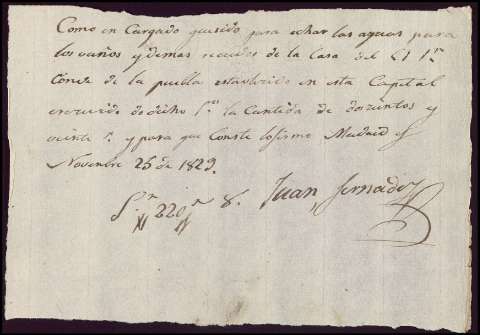 Como en Cargado que sido para echar las aguas para
los vaños y demas recados de la Casa del
Conde de la puebla establecido en esta Capital
erreciuido de dicho Sr. la Cantida de dosientos y
veinte r. y para que Conste lo firmo Madrid
Novembre 25 de 1829.
Son 220 rn Juan Fernadez